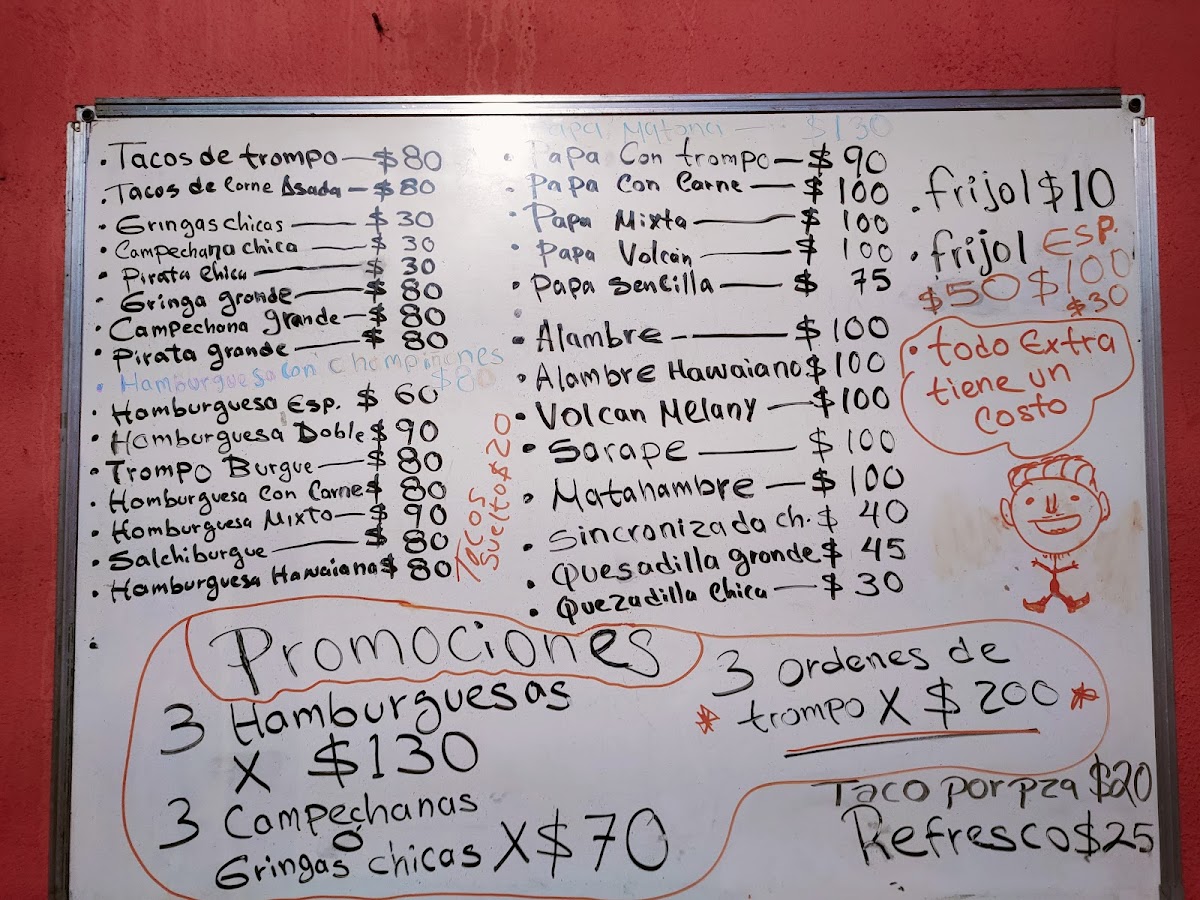 · Tacos de trompo — $ 80
· Tacos de Carne Asada — $ 80
· Gringas chicas — $ 30
· Campechana chica — $ 30
· Pirata Chica — $ 30
· Gringa grande — $ 80
· Campechana grande — $ 80
· Pirata grande — $ 80
· Hamburguesa con champiñones $80
· Hamburguesa Esp. $ 60
· Hamburguesa Doble $ 90
· Trompo Burgue — $ 80
· Hamburguesa Con Carne $ 80
· Hamburguesa Mixto — $ 90
· Salchiburgue — $ 80
· Hamburguesa Hawaiana $ 80
Tacos
suelto $20
Papa Matona — $130
· Papa Con trompo — $ 90
· Papa Con Carne — $ 100
· Papa Mixta — $ 100
· Papa Volcán — $ 100
· Papa Sencilla — $ 75
· Alambre — $ 100
· Alambre Hawaiano $100
· Volcan Melany — $100
· Sarape — $ 100
· Matahambre — $ 100
· Sincronizada ch. $ 40
· Quesadilla grande $ 45
· Quezadilla Chica — $ 30
· frijol $10
· frijol ESP.
$50 $100
$30
· todo Extra
tiene un
costo
Promociones
3 Hamburguesas
X $130
3 Campechanas
ó
Gringas chicas X $70
3 ordenes de
* trompo X $200 *
Taco por pza $20
Refresco $25